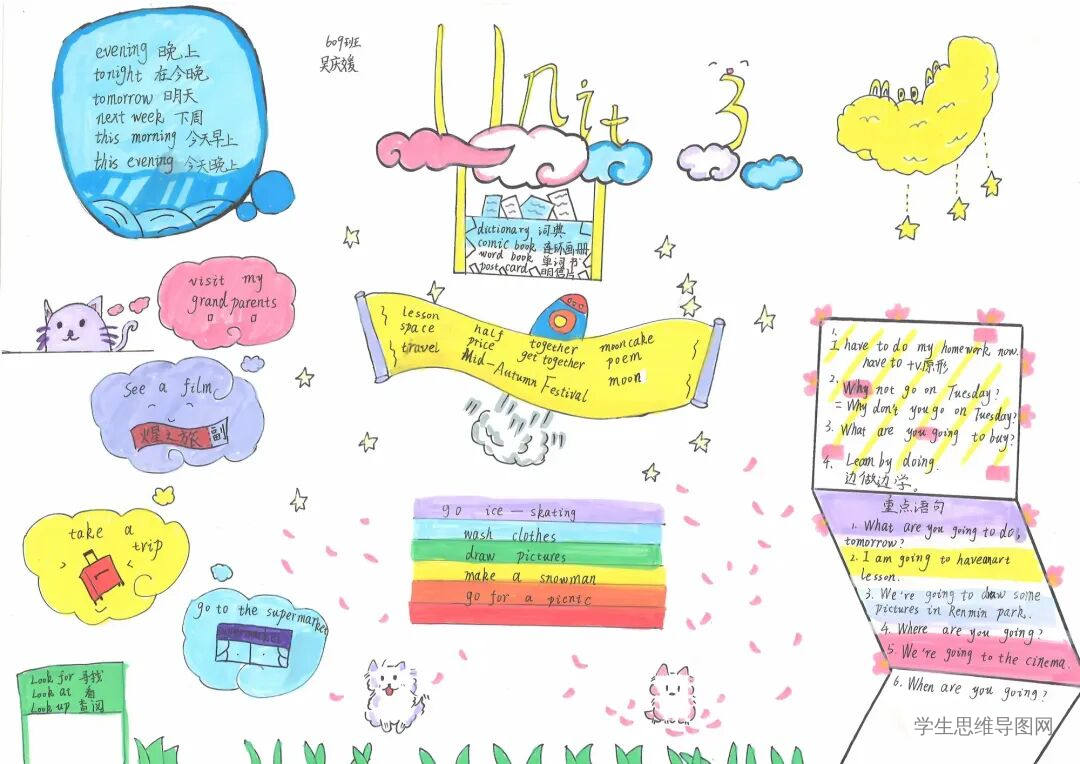 evening 晚上
tonight 在今晚
tomorrow 明天
next week 下周
this morning 今天早上
this evening 今天晚上
609班
吴庆媛
Unit 3
dictionary 词典
comic book 连环画册
word book 单词书
post card 明信片
visit my
grandparents
see a film
take a
trip
go to the supermarket
supermarket
Look for 寻找
Look at 看
Look up 查阅
lesson half together mooncake
space price get together poem
travel Mid-Autumn Festival moon
go ice-skating
wash clothes
draw pictures
make a snowman
go for a picnic
1.
I have to do my homework now.
have to +v原形
2.
Why not go on Tuesday?
= Why don't you go on Tuesday?
3. What are you going to buy?
4. Learn by doing.
边做边学。
重点语句
1. What are you going to do,
tomorrow?
2. I am going to have an art
lesson.
3. We're going to draw some
pictures in Renmin park.
4. Where are you going?
5. We're going to the cinema.
6. When are you going?
学生思维导图网